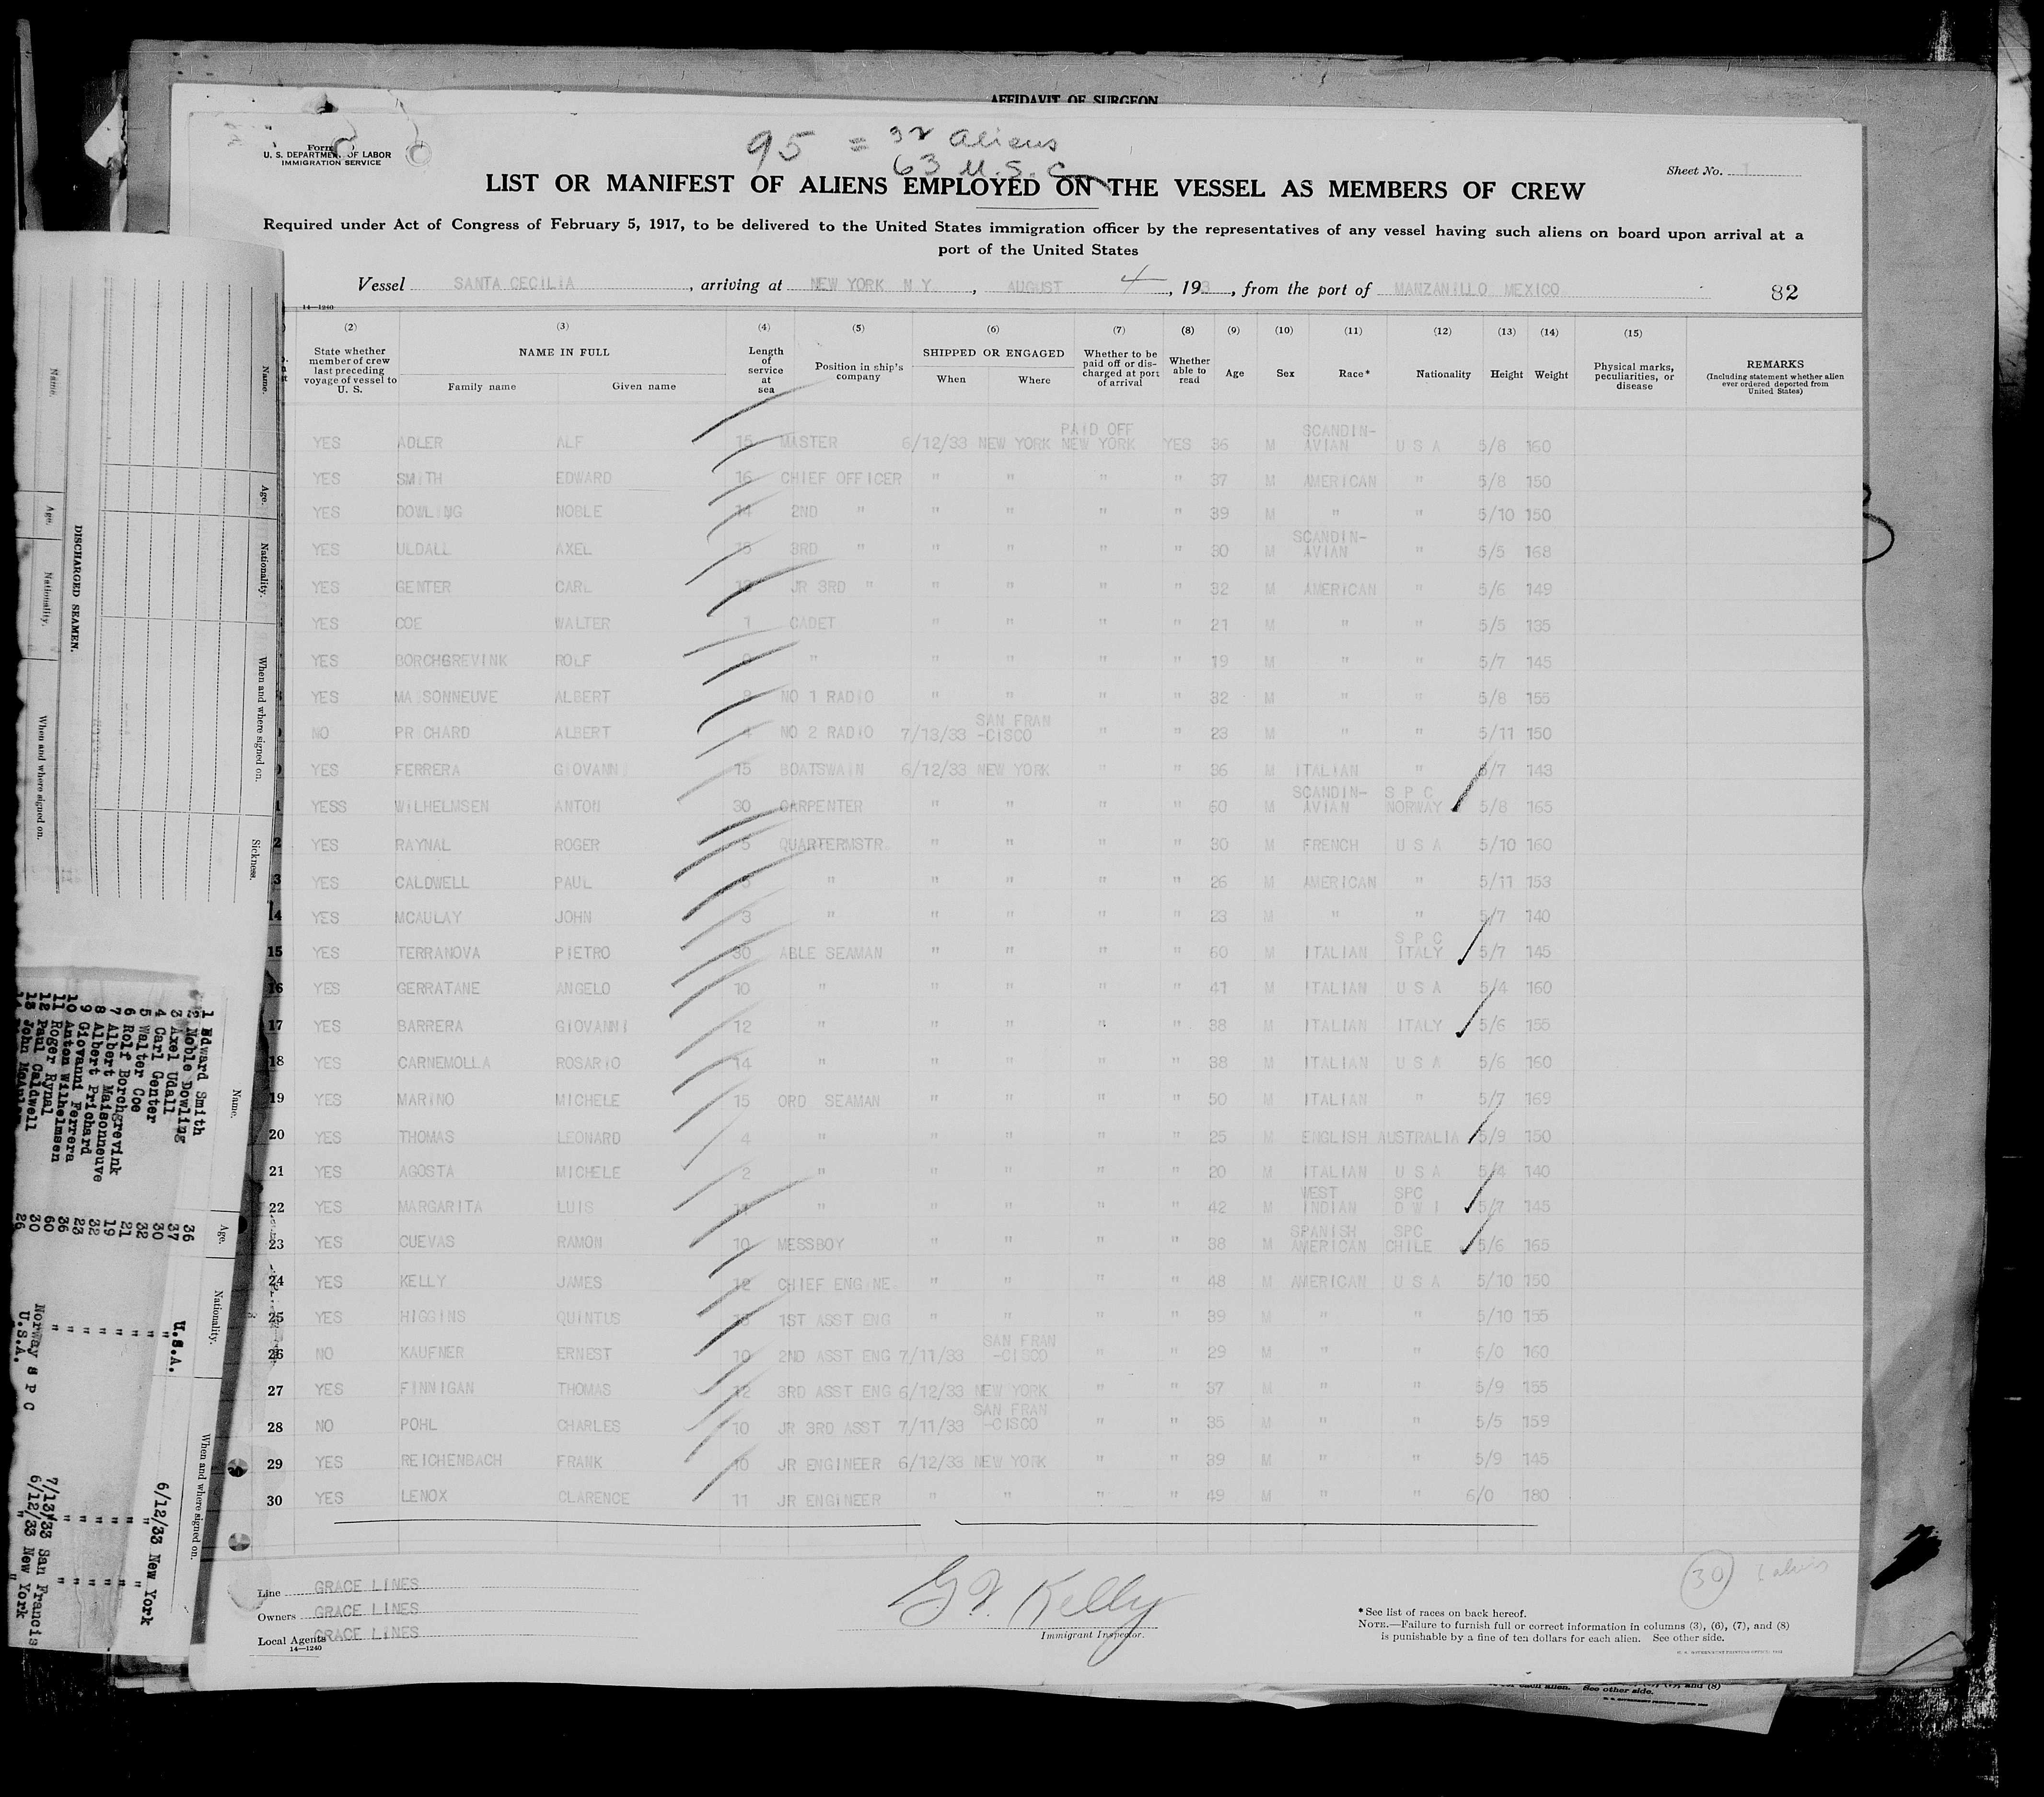 AFFIDAVIT OF SURGEON
95 = 32 Aliens
63 U.S.C.
Form
U. S. DEPARTMENT OF LABOR
IMMIGRATION SERVICE
Sheet No. 1
LIST OR MANIFEST OF ALIENS EMPLOYED ON THE VESSEL AS MEMBERS OF CREW
Required under Act of Congress of February 5, 1917, to be delivered to the United States immigration officer by the representatives of any vessel having such aliens on board upon arrival at a
port of the United States
Vessel SANTA CECILIA, arriving at NEW YORK N Y, AUGUST 4, 193, from the port of MANZANILLO MEXICO 82
14—1240
(2) (3) (4) (5) (6) (7) (8) (9) (10) (11) (12) (13) (14) (15)
State whether member of crew last preceding voyage of vessel to U. S.
NAME IN FULL
Family name Given name
Length of service at sea
Position in ship's company
SHIPPED OR ENGAGED
When Where
Whether to be paid off or discharged at port of arrival
Whether able to read
Age Sex Race* Nationality Height Weight
Physical marks, peculiarities, or disease
REMARKS
(Including statement whether alien ever ordered deported from United States)
YES ADLER ALF 15 MASTER 6/12/33 NEW YORK PAID OFF NEW YORK YES 36 M SCANDIN-AVIAN U S A 5/8 160
YES SMITH EDWARD 16 CHIEF OFFICER " " " " 37 M AMERICAN " 5/8 150
YES DOWLING NOBLE 14 2ND " " " " " 39 M " " 5/10 150
YES ULDALL AXEL 3RD " " " " " 30 M SCANDIN-AVIAN " 5/5 168
YES GENTER CARL JR 3RD " " " " " 32 M AMERICAN " 5/6 149
YES COE WALTER 1 CADET " " " " 21 M " " 5/5 135
YES BORCHGREVINK ROLF " " " " " 19 M " " 5/7 145
YES MAISONNEUVE ALBERT 8 NO 1 RADIO " " " " 32 M " " 5/8 155
NO PRICHARD ALBERT 4 NO 2 RADIO 7/13/33 SAN FRAN-CISCO " " 23 M " " 5/11 150
YES FERRERA GIOVANNI 15 BOATSWAIN 6/12/33 NEW YORK " " 36 M ITALIAN " 5/7 143
1 YESS WILHELMSEN ANTON 30 CARPENTER " " " " 60 M SCANDIN-AVIAN S P C NORWAY 5/8 165
2 YES RAYNAL ROGER 5 QUARTERMSTR " " " " 30 M FRENCH U S A 5/10 160
3 YES CALDWELL PAUL QUARTERMSTR " " " " 26 M AMERICAN " 5/11 153
14 YES MCAULAY JOHN 3 " " " " " 23 M " " 5/7 140
15 YES TERRANOVA PIETRO 30 ABLE SEAMAN " " " " 60 M ITALIAN S P C ITALY 5/7 145
16 YES GERRATANE ANGELO 10 " " " " " 41 M ITALIAN U S A 5/4 160
17 YES BARRERA GIOVANNI 12 " " " " " 38 M ITALIAN ITALY 5/6 155
18 YES CARNEMOLLA ROSARIO 14 " " " " " 38 M ITALIAN U S A 5/6 160
19 YES MARINO MICHELE 15 ORD SEAMAN " " " " 50 M ITALIAN " 5/7 169
20 YES THOMAS LEONARD 4 " " " " " 25 M ENGLISH AUSTRALIA 5/9 150
21 YES AGOSTA MICHELE 2 " " " " " 20 M ITALIAN U S A 5/4 140
22 YES MARGARITA LUIS " " " " " 42 M WEST INDIAN SPC D W I 5/7 145
23 YES CUEVAS RAMON 10 MESSBOY " " " " 38 M SPANISH AMERICAN SPC CHILE 5/6 165
24 YES KELLY JAMES 12 CHIEF ENGINE " " " " 48 M AMERICAN U S A 5/10 150
25 YES HIGGINS QUINTUS 1ST ASST ENG " " " " 39 M " " 5/10 155
26 NO KAUFNER ERNEST 10 2ND ASST ENG 7/11/33 SAN FRAN-CISCO " " 29 M " " 6/0 160
27 YES FINNIGAN THOMAS 12 3RD ASST ENG 6/12/33 NEW YORK " " 37 M " " 5/9 155
28 NO POHL CHARLES 10 JR 3RD ASST 7/11/33 SAN FRAN-CISCO " " 35 M " " 5/5 159
29 YES REICHENBACH FRANK 10 JR ENGINEER 6/12/33 NEW YORK " " 39 M " " 5/9 145
30 YES LENOX CLARENCE 11 JR ENGINEER " " " " 49 M " " 6/0 180
Line GRACE LINES
Owners GRACE LINES
Local Agents GRACE LINES
14—1240
G F. Kelly
Immigrant Inspector.
30
*See list of races on back hereof.
NOTE.—Failure to furnish full or correct information in columns (3), (6), (7), and (8)
is punishable by a fine of ten dollars for each alien. See other side.
See other side.
Name. Age. Nationality. When and where signed on. Sickness.
DISCHARGED SEAMEN.
Name. Age. Nationality. When and where signed on.
Name. Age. Nationality. When and where signed on.
1 Edward Smith 36 U.S.A. 6/12/33 New York
2 Noble Dowling 37
3 Axel Udall 30 "
4 Carl Genter 32 "
5 Walter Coe 21 "
6 Rolf Borchgrevink 19 "
7 Albert Maisonneuve 32 "
8 Albert Prichard 23 " 7/13/33 San Francis
9 Giovanni Ferrera 36 " 6/12/33 New York
10 Anton Wilhelmsen 60 Norway S P C
11 Roger Rynal 30 U.S.A.
12 Paul Caldwell 26
13 John McAulay